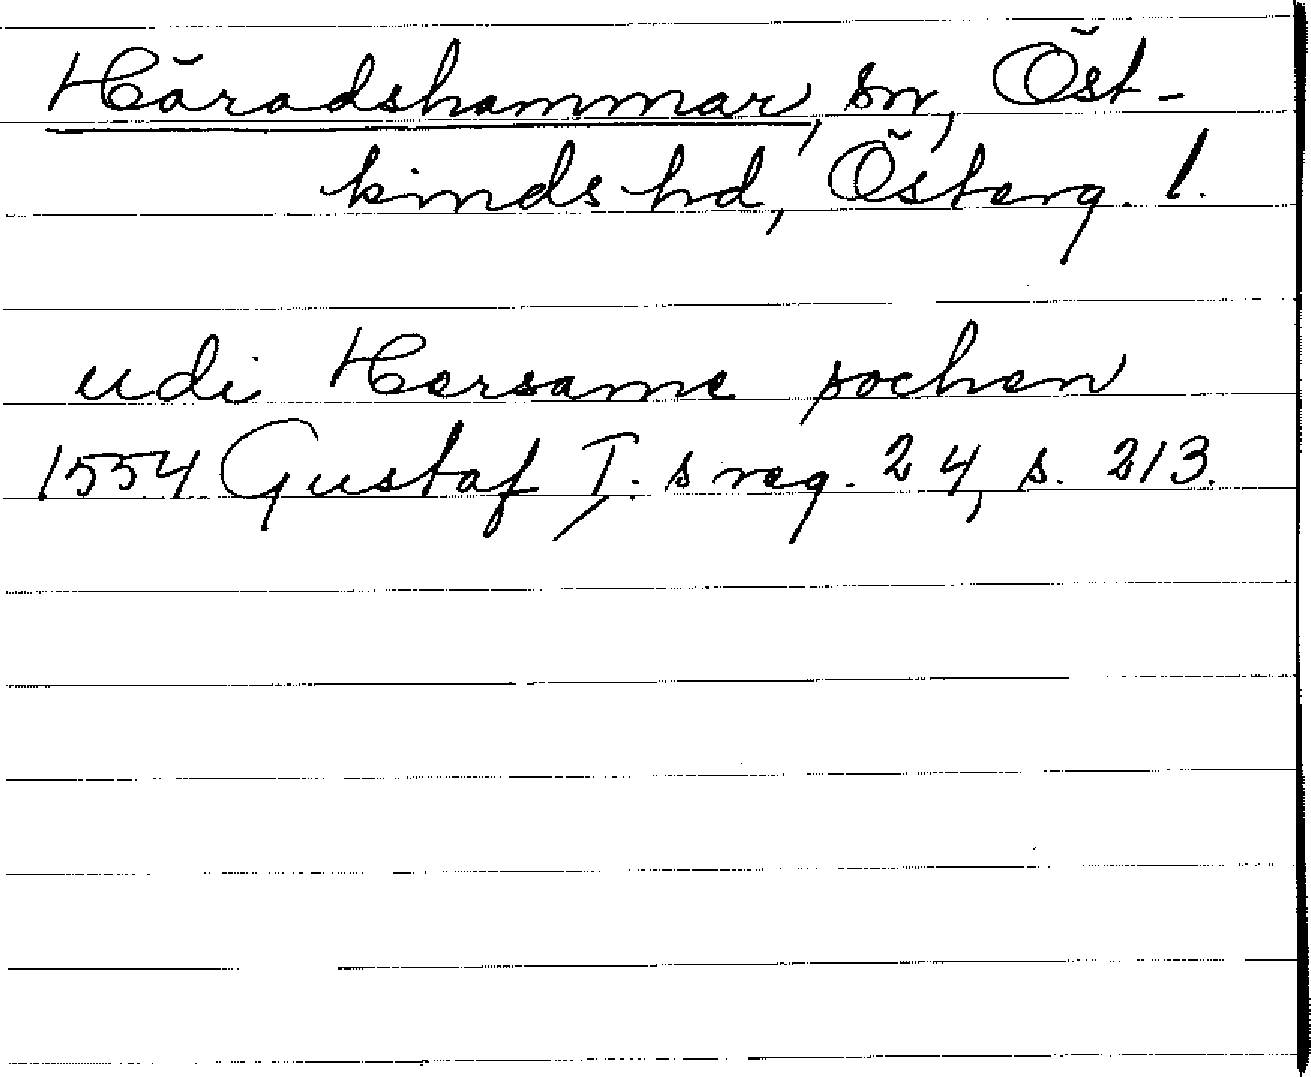 Häradshammar, sn, Öst-
kinds hd, Österg. l.
udi Hersame sochen
1554 Gustaf I:s reg. 24, s. 213.